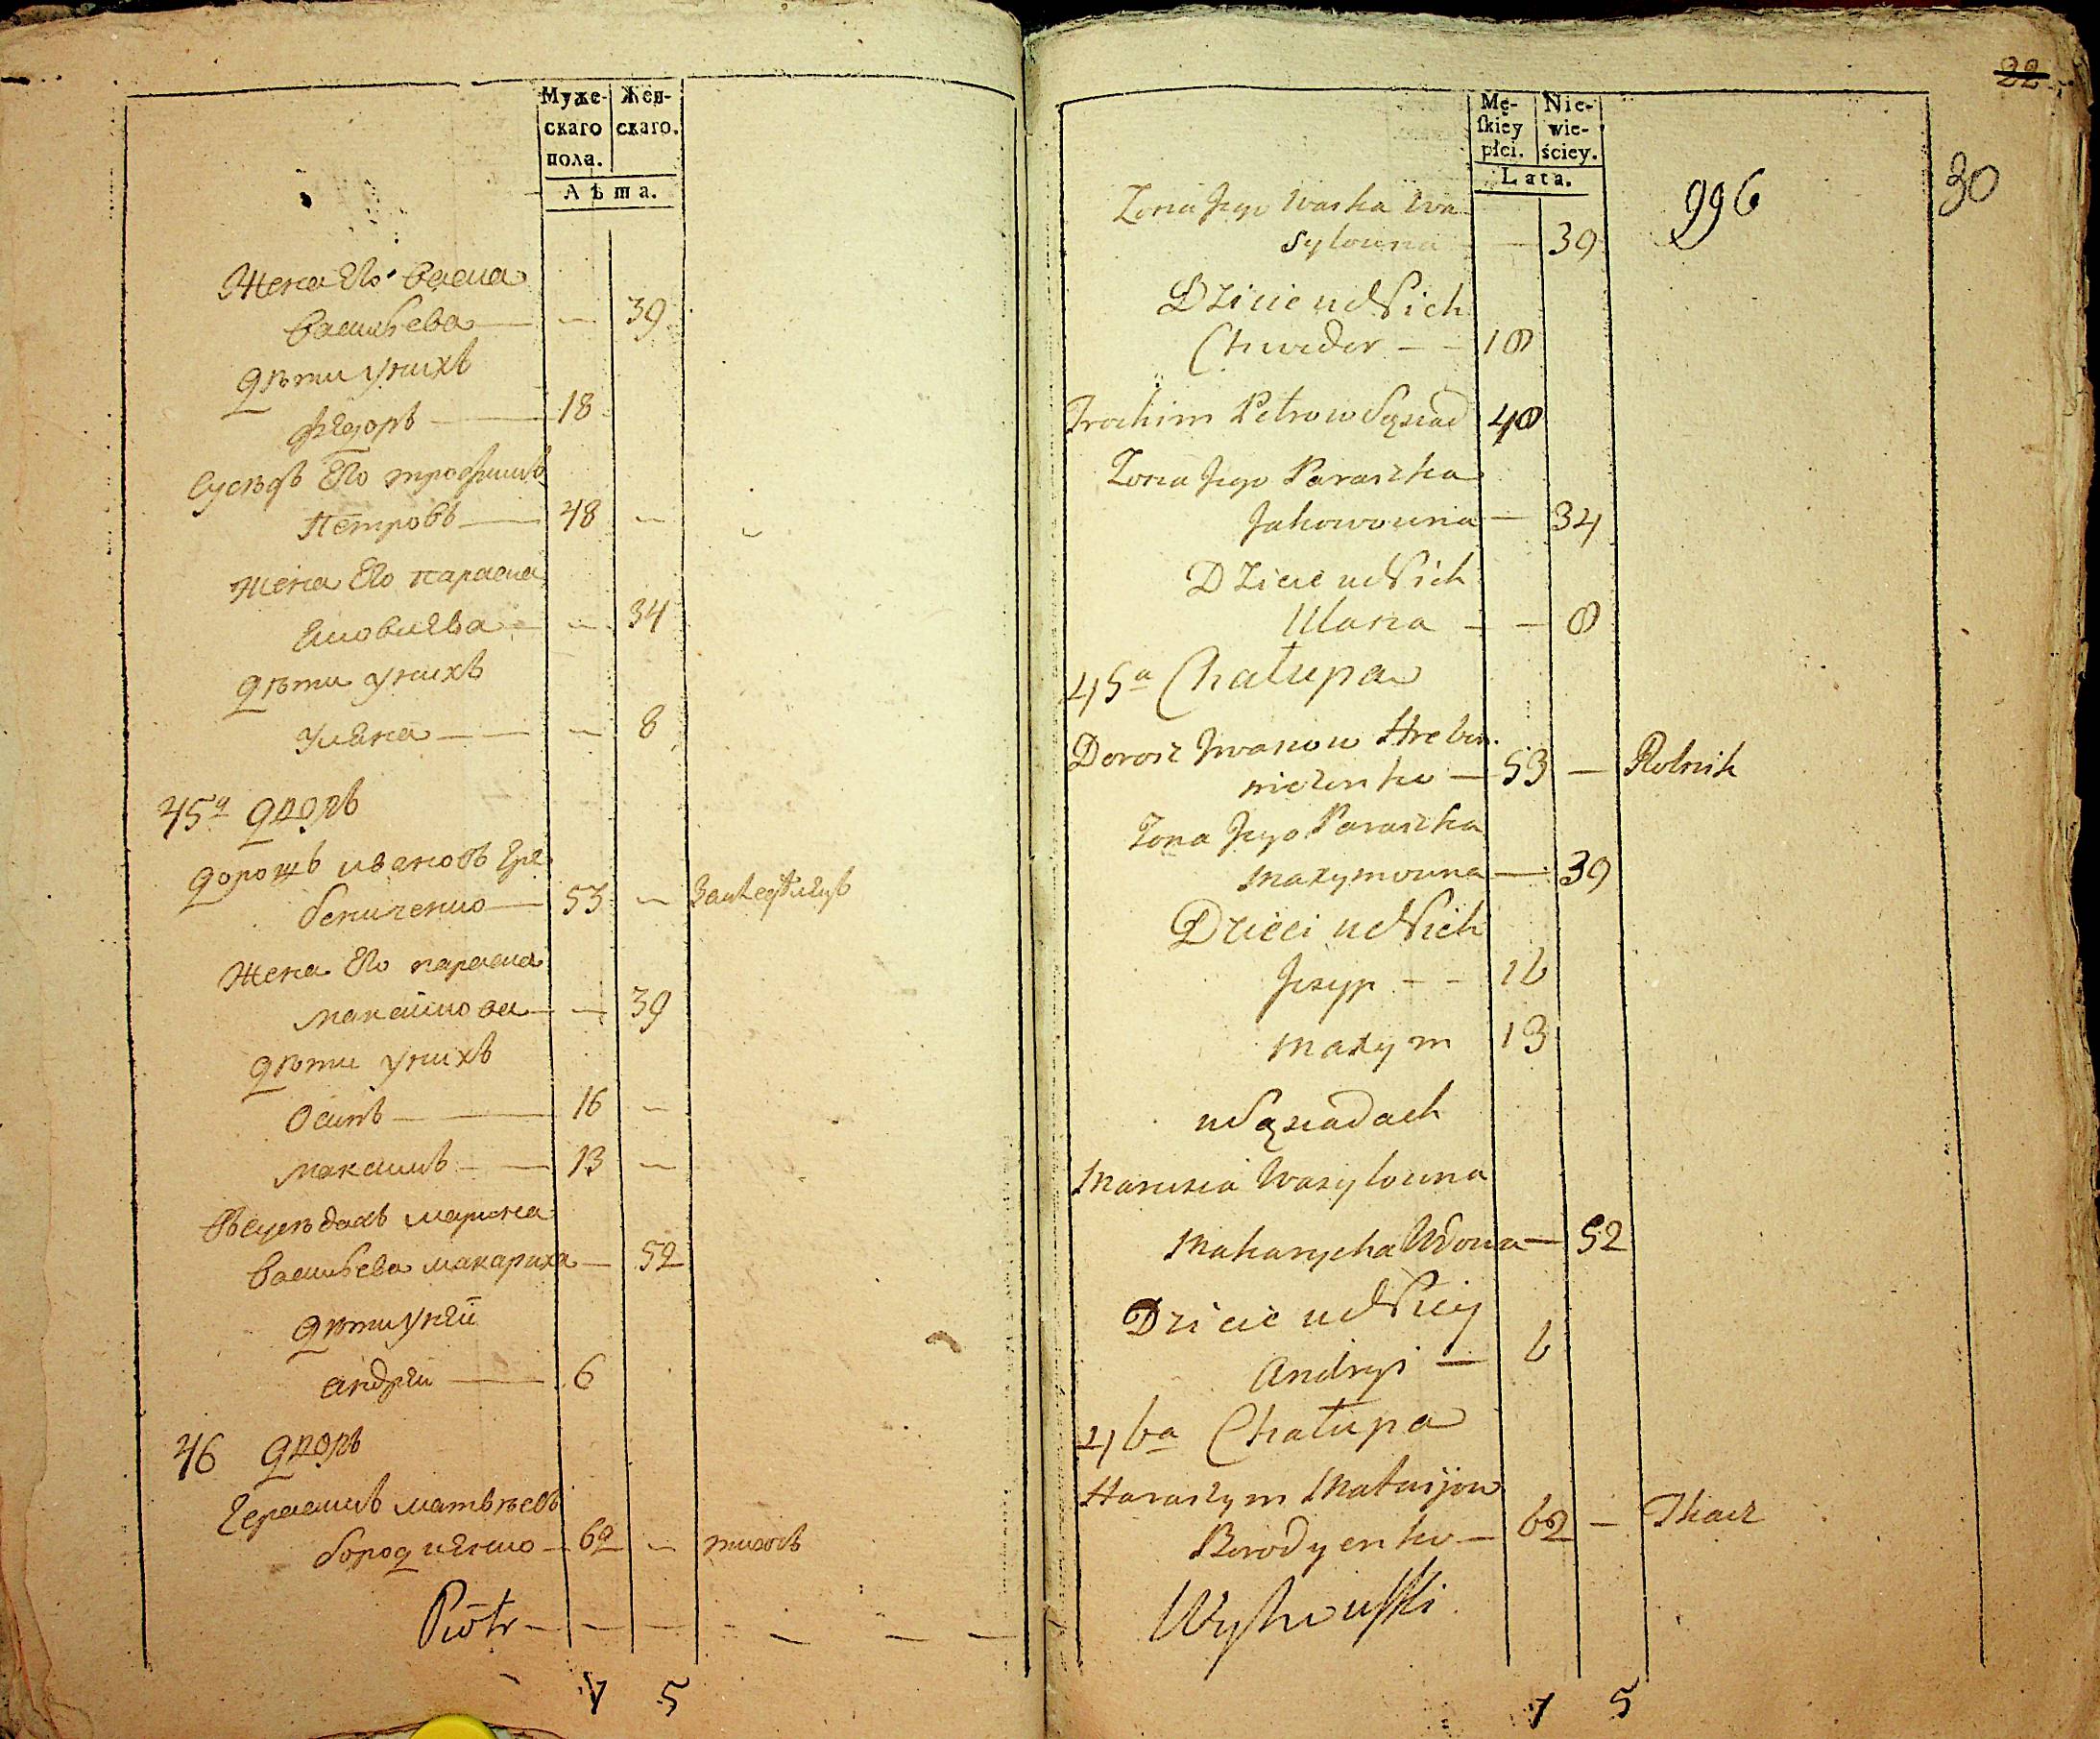 Муже-
скаго
пола.
Жен-
скаго.
Лѣта.
Жена Его Васка
Васильева — — 39
дѣти у нихъ
Федоръ — 18
Сусѣдъ Его трофимъ
Петровъ — 48 —
Жена Его параска
Яковлева — — 34
дѣти у нихъ
Уляна — — 8
45й дворъ
дорошъ ивановъ Гре
бениченко — 53 —
Жена Его параска
максимова — — 39
дѣти у нихъ
Осипъ — 16 —
максимъ — 13 —
Въ сусѣдахъ марина
Васильева макариха — 52
дѣти у нѣй
андрей — 6
46 дворъ
Герасимъ матвѣевъ
бородиенко — 62 — ткачъ
Piotr — — — — — —
7 5
22
30
996
Mę-
ſkiey
płci.
Nie-
wie-
ściey.
Lata.
Zona Jego Waska Wa
sylowna — 39
Dziecie u Nich
Chwedor — — 18
Trochim Petrow Sąsiad 48
Zona Jego Paraszka
Jakowowna — 34
Dziecie u Nich
Ulana — — 8
45a Chałupa
Dorosz Jwanow Hrebe
niczenko — 53 — Rolnik
Zona Jego Paraszka
Maxymowna — 39
Dzieci u Nich
Jesyp — — 16
Maxym 13
w Sąsiadach
Marusia Wasylowna
Makarycha Wdowa — 52
Dziecie u Niey
Andryi — 6
46a Chałupa
Haraszym Matwijow
Borodyenko — 62 — Tkacz
Wyhowſki
7 5